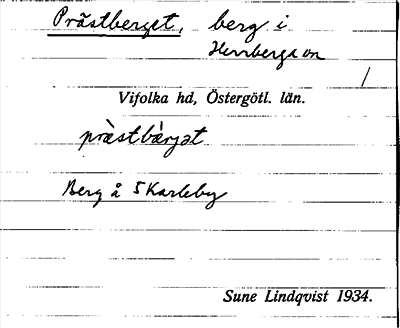 Prästberget, berg i
Herrberga sn
/
Vifolka hd, Östergötl. län.
præ̀stbærjət
Berg å S Karleby
Sune Lindqvist 1934.